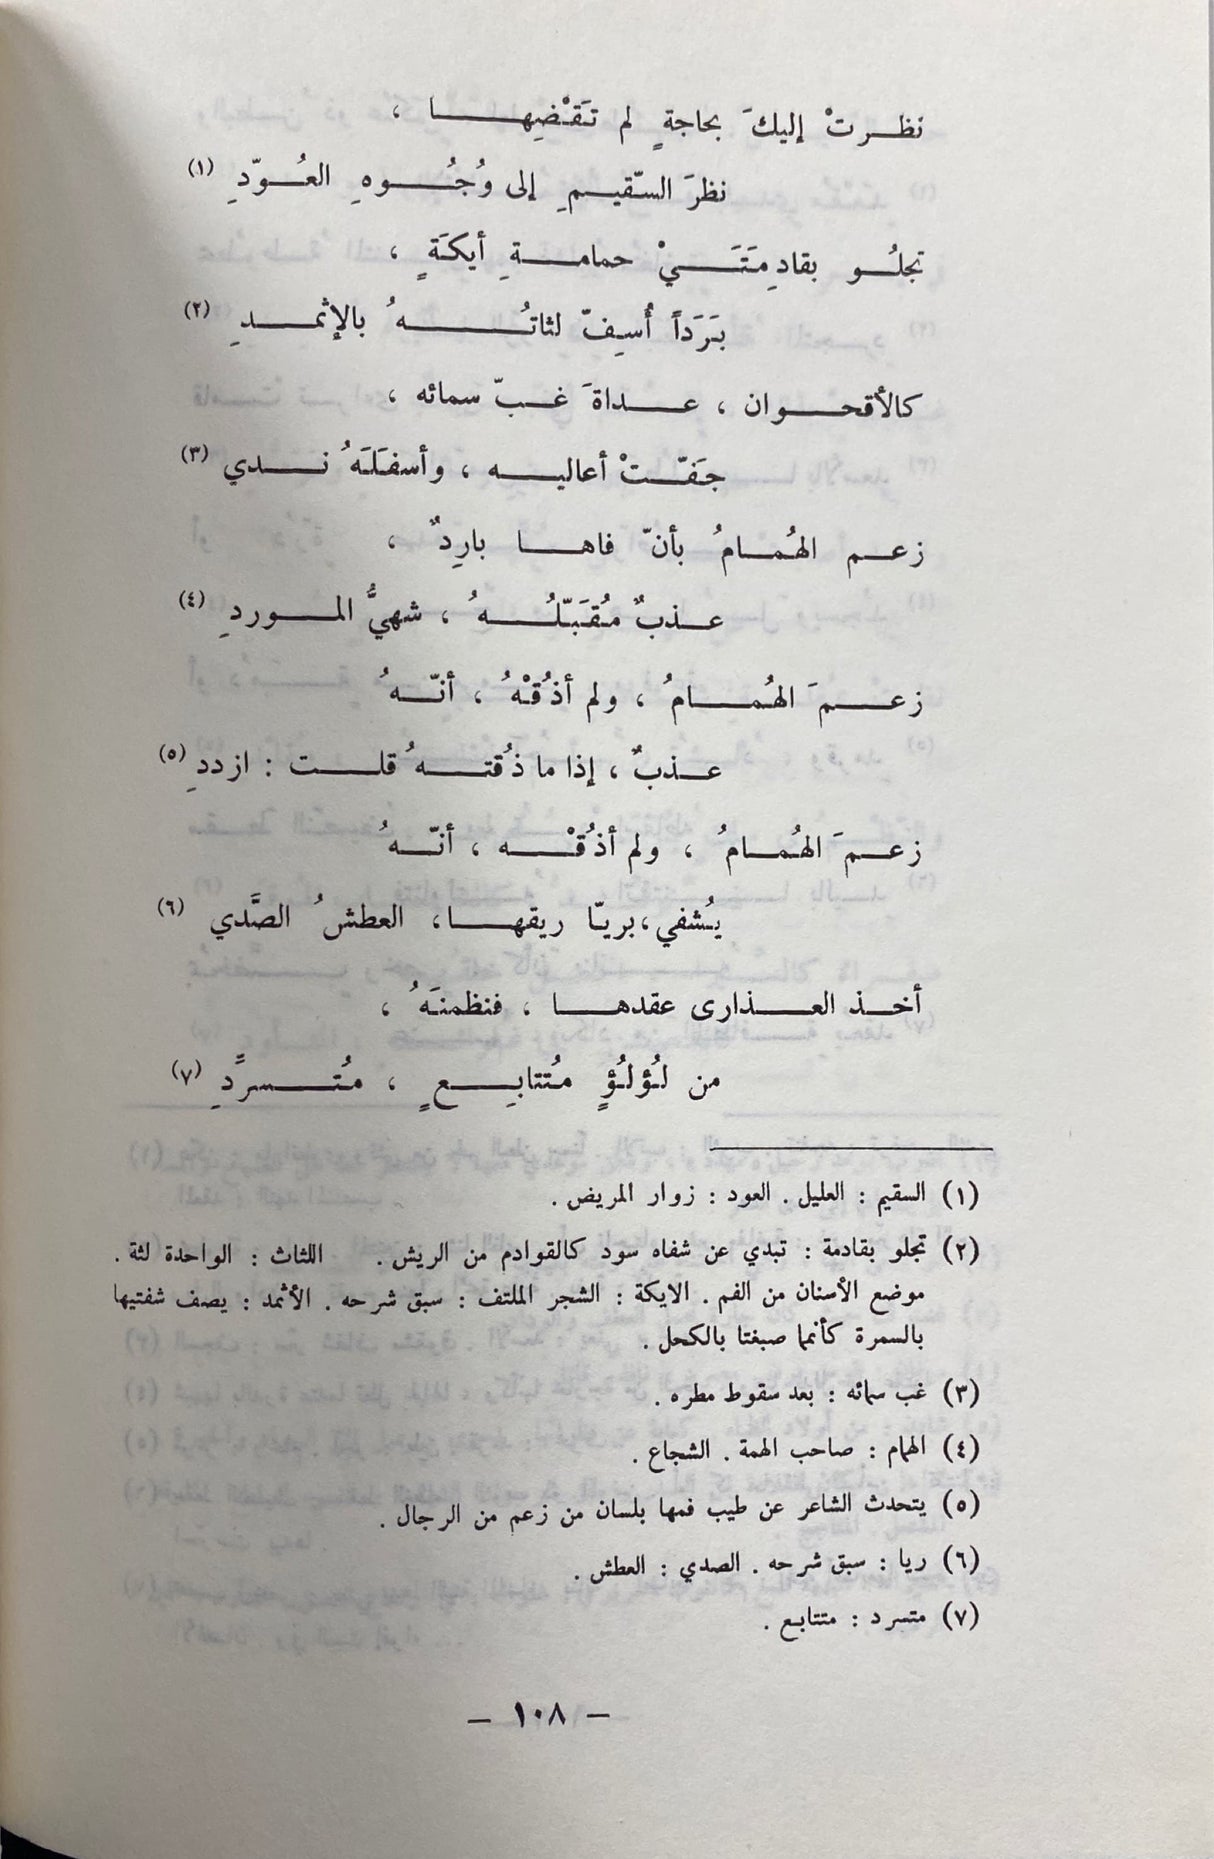 نظرتْ إليكَ بحاجةٍ لم تَقْضِها ،
نظرَ السّقيمِ إلى وُجُوهِ العُوّدِ (١)
تجلُو بقادِمَتَيْ حمامةِ أيكَةٍ ،
بَرَداً أُسِفّ لثاتُهُ بالإثمدِ (٢)
كالأقحوان ، عداةَ غبّ سمائه ،
جَفّتْ أعاليه ، وأسفلَهُ ندي (٣)
زعم الهُمامُ بأنّ فاها بارِدٌ ،
عذبٌ مُقَبّلُهُ ، شهيُّ الموردِ (٤)
زعمَ الهُمامُ ، ولم أذُقْهُ ، أنّهُ
عذبٌ ، إذا ما ذُقتهُ قلت : ازددِ (٥)
زعمَ الهُمامُ ، ولم أذُقْه ، أنّهُ
يُشفي ، بريّا ريقها ، العطشُ الصَّدي (٦)
أخذ العذارى عقدها ، فنظمنَهُ ،
من لُؤلُؤٍ مُتتابِعٍ ، مُتسرِّدِ (٧)
(١) السقيم : العليل . العود : زوار المريض .
(٢) تجلو بقادمة : تبدي عن شفاه سود كالقوادم من الريش . اللثاث : الواحدة لثة .
موضع الأسنان من الفم . الايكة : الشجر الملتف : سبق شرحه . الأثمد : يصف شفتيها
بالسمرة كأنما صبغتا بالكحل .
(٣) غب سمائه : بعد سقوط مطره .
(٤) الهمام : صاحب الهمة . الشجاع .
(٥) يتحدث الشاعر عن طيب فمها بلسان من زعم من الرجال .
(٦) ريا : سبق شرحه . الصدي : العطش .
(٧) متسرد : متتابع .
– ١٠٨ –